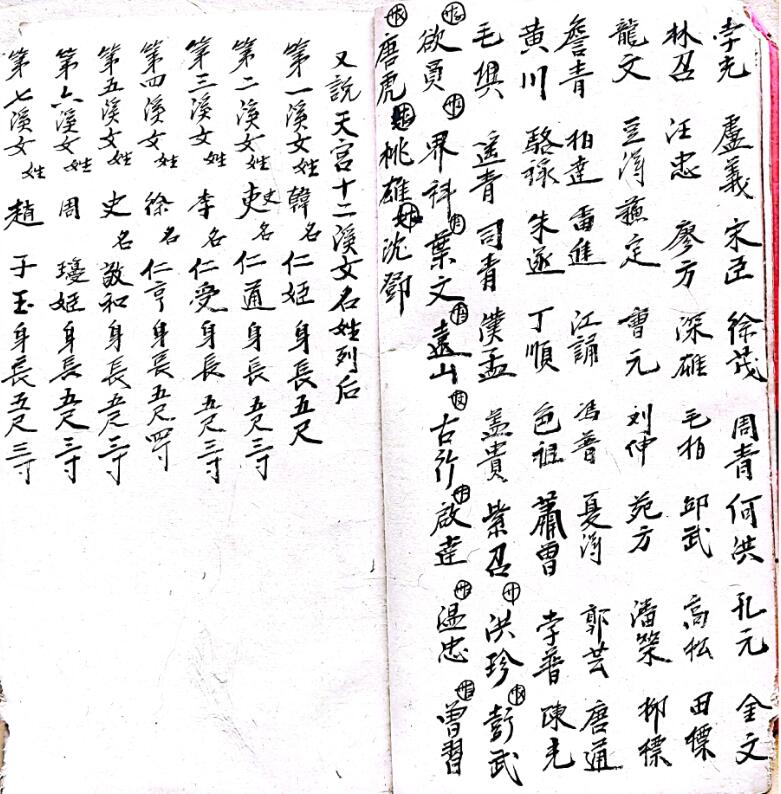 李先 盧義 宋臣 徐茂 周青 何洪 孔元 金文
林召 汪忠 廖方 深雄 毛柏 邱武 高松 田標
龍文 豆淂 蘓定 曹元 刘伸 苑方 潘榮 柳標
詹青 柏達 雷進 江誦 馮普 夏淂 郭芸 唐通
黄川 駱球 朱遂 丁順 色祖 蕭曾 李普 陳光
毛與 遥青 司青 漢孟 盖貴 柴召 洪珍 彭武
欲員 界科 葉文 遠山 古行 啟達 温忠 曾習
唐虎 桃雄 沈鄧
又説天宫十二溪女名姓列后
第一溪女姓韓名仁姬身長五尺
第二溪女姓吏史名仁通身長五尺三寸
第三溪女姓李名仁受身長五尺三寸
第四溪女姓徐名仁亨身長五尺四寸
第五溪女姓史名敬和身長五尺三寸
第六溪女姓周瓊姬身長五尺三寸
第七溪女姓趙子玉身長五尺三寸